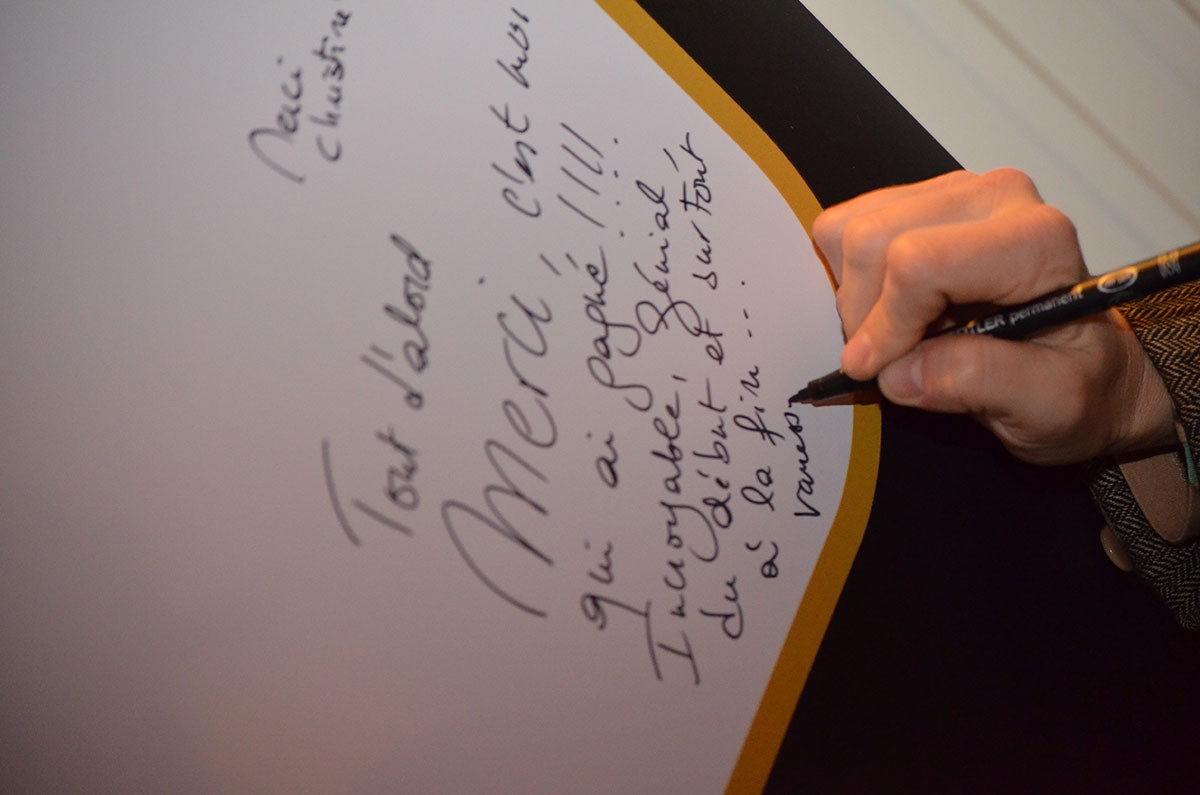 Merci
Christine
Tout d'abord
Merci, c'est moi
qui ai gagné !!!!
Incroyable, génial,
du début et surtout
à la fin...
vaness
STAEDTLER permanent